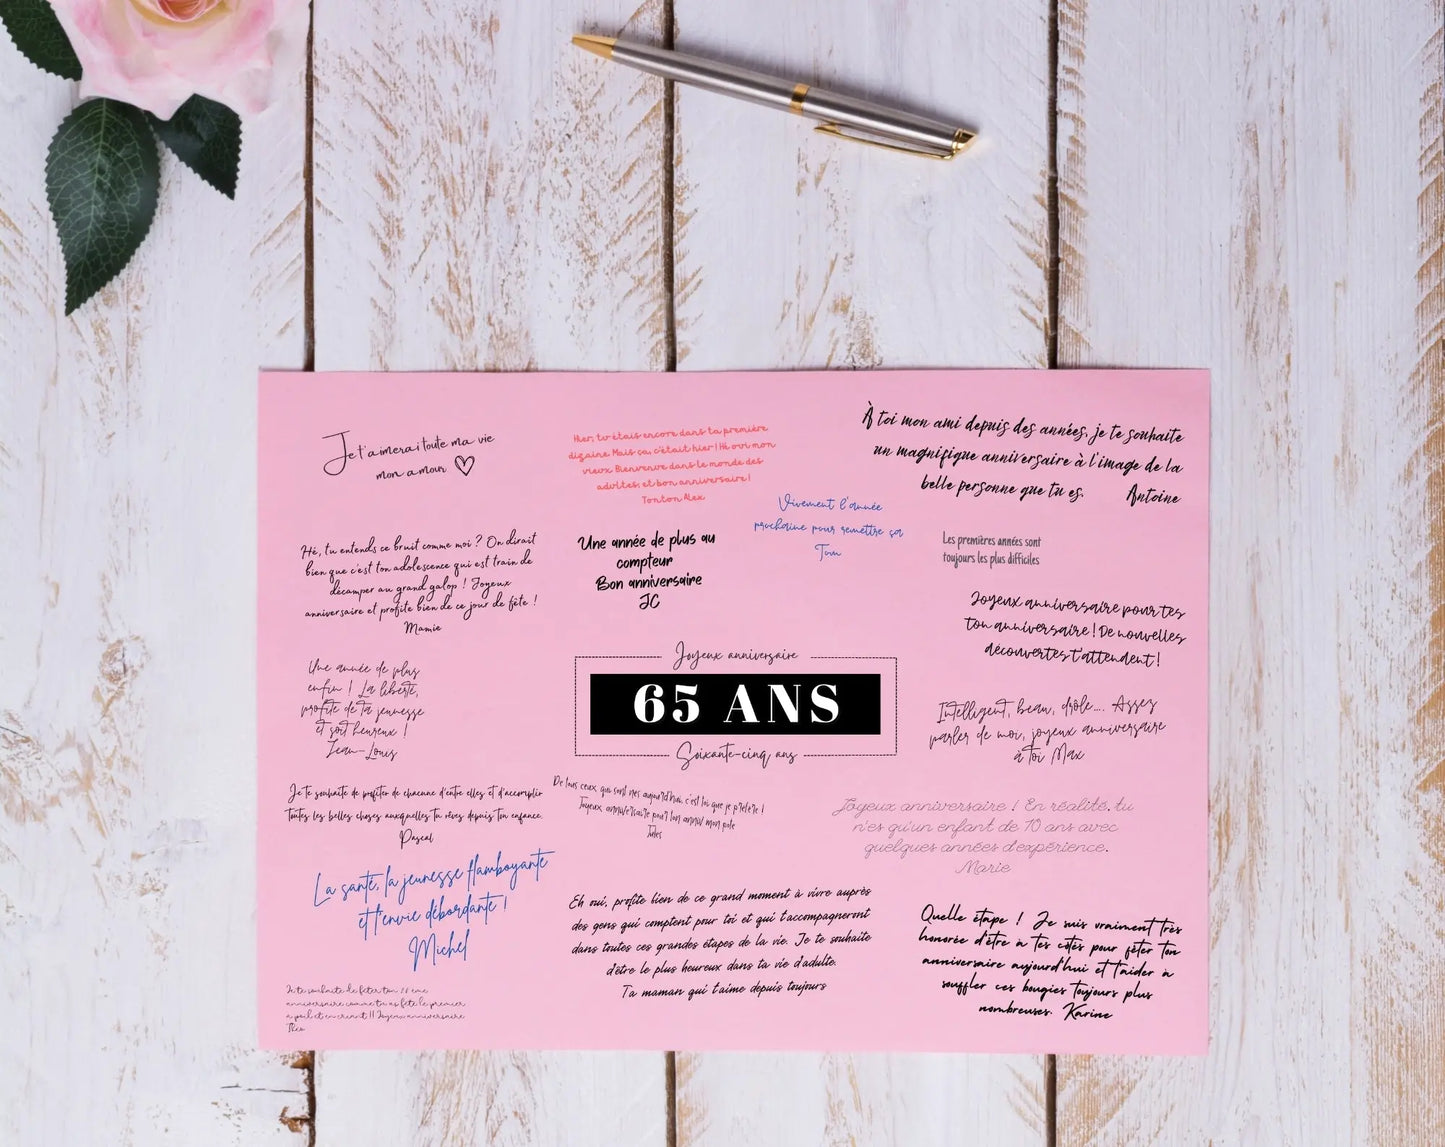 Je t'aimerai toute ma vie
mon amour
Hier, tu étais encore dans ta première
dizaine. Mais ça, c'était hier ! Hé oui mon
vieux. Bienvenue dans le monde des
adultes, et bon anniversaire !
Tonton Alex
À toi mon ami depuis des années, je te souhaite
un magnifique anniversaire à l'image de la
belle personne que tu es. Antoine
Vivement l'année
prochaine pour remettre ça
Tom
Hé, tu entends ce bruit comme moi ? On dirait
bien que c'est ton adolescence qui est train de
décamper au grand galop ! Joyeux
anniversaire et profite bien de ce jour de fête !
Mamie
Une année de plus au
compteur
Bon anniversaire
JC
Les premières années sont
toujours les plus difficiles
Joyeux anniversaire pour tes
ton anniversaire ! De nouvelles
découvertes t'attendent !
Une année de plus
enfin ! La liberté,
profite de ta jeunesse
et soit heureux !
Jean-Louis
Joyeux anniversaire
65 ANS
Soixante-cinq ans
Intelligent, beau, drôle.... Assez
parler de moi, joyeux anniversaire
à toi Max
Je te souhaite de profiter de chacune d'entre elles et d'accomplir
toutes les belles choses auxquelles tu rêves depuis ton enfance.
Pascal
De tous ceux qui sont nés aujourd'hui, c'est toi que je préfère !
Joyeux anniversaire pour ton anniv mon pote
Jules
Joyeux anniversaire ! En réalité, tu
n'es qu'un enfant de 10 ans avec
quelques années d'expérience.
Marie
La santé, la jeunesse flamboyante
et l'envie débordante !
Michel
Eh oui, profite bien de ce grand moment à vivre auprès
des gens qui comptent pour toi et qui t'accompagneront
dans toutes ces grandes étapes de la vie. Je te souhaite
d'être le plus heureux dans ta vie d'adulte.
Ta maman qui t'aime depuis toujours
Quelle étape ! Je suis vraiment très
honorée d'être à tes côtés pour fêter ton
anniversaire aujourd'hui et t'aider à
souffler ces bougies toujours plus
nombreuses. Karine
Je te souhaite de fêter ton ème
anniversaire comme tu as fêté le premier
à poil et en criant !! Joyeux anniversaire
Théo